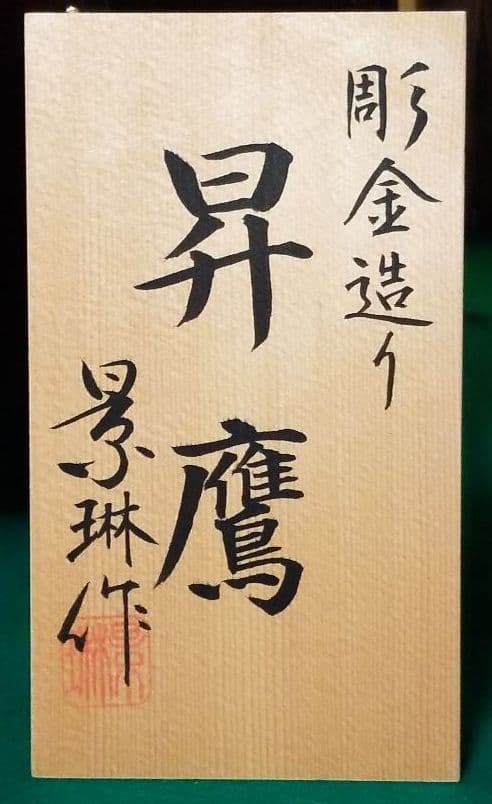 彫金造り
昇鷹
景琳作
景琳